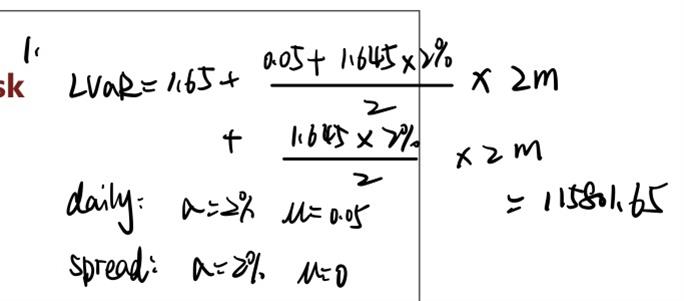 1.
sk
LVaR = 1.65 + (0.05 + 1.645 × 2%)/2 × 2m
+ (1.645 × 2%)/2 × 2m
= 115801.65
daily: a=2% μ=0.05
spread: a=2% μ=0